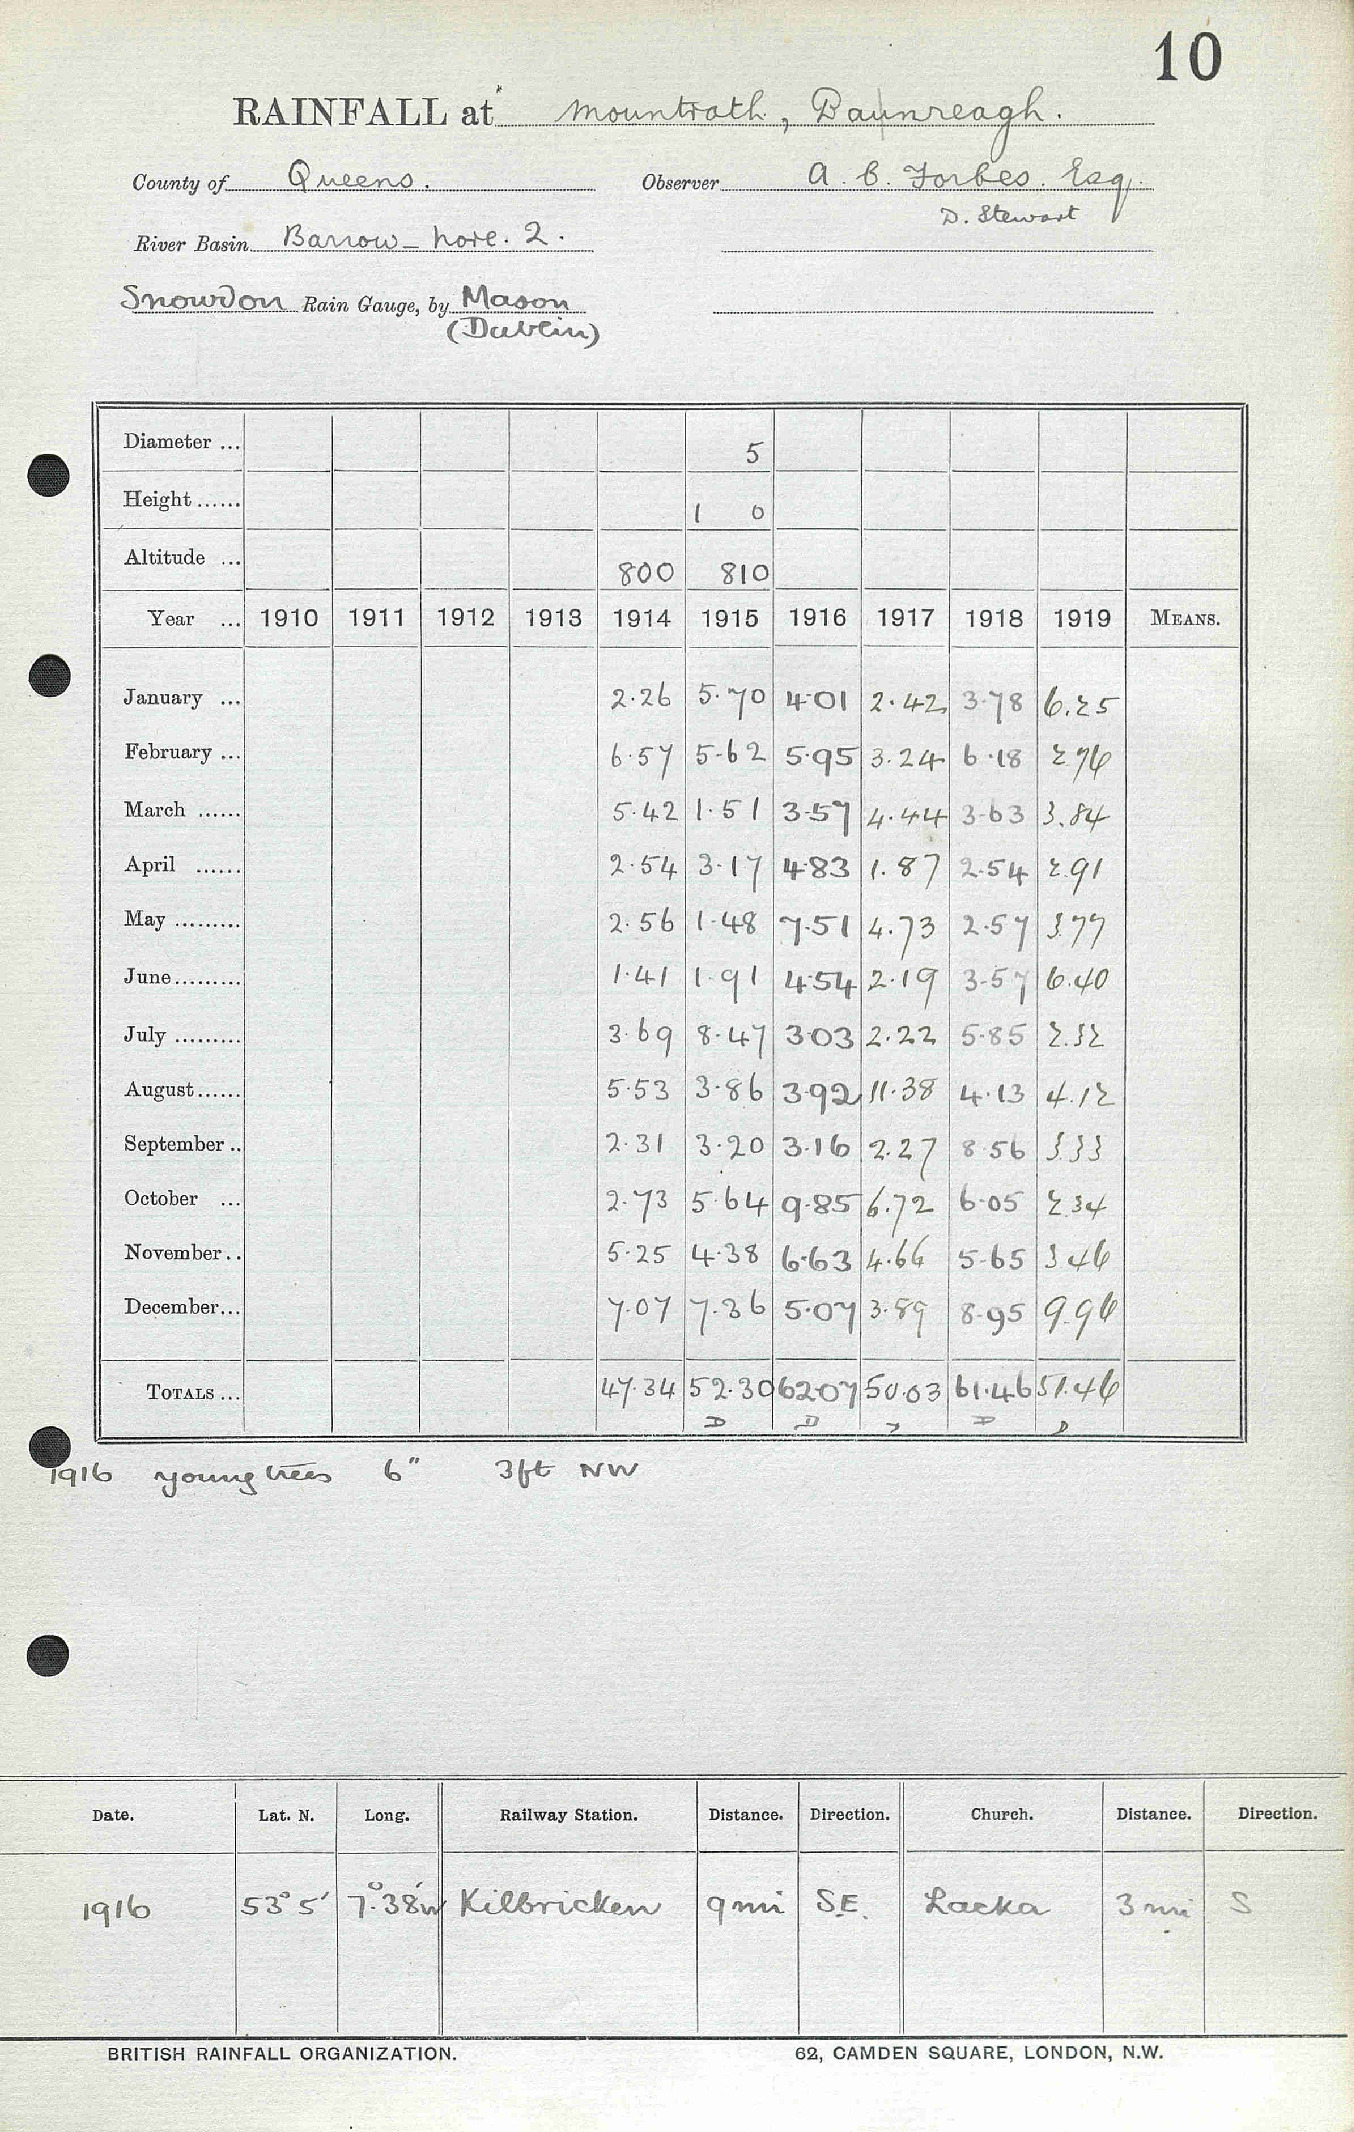 10
RAINFALL at Mountrath, Baunreagh.
County of Queens. Observer A. C. Forbes. Esq.
D. Stewart
River Basin Barrow - Nore. 2.
Snowdon Rain Gauge, by Mason
(Dublin)
Diameter ... 5
Height ...... 1 0
Altitude ... 800 810
Year ... 1910 1911 1912 1913 1914 1915 1916 1917 1918 1919 MEANS.
January ... 2.26 5.70 4.01 2.42 3.78 6.25
February ... 6.57 5.62 5.95 3.24 6.18 2.76
March ...... 5.42 1.51 3.57 4.44 3.63 3.84
April ...... 2.54 3.17 4.83 1.87 2.54 2.91
May ......... 2.56 1.48 7.51 4.73 2.57 3.77
June ......... 1.41 1.91 4.54 2.19 3.57 6.40
July ......... 3.69 8.47 3.03 2.22 5.85 2.32
August ...... 5.53 3.86 3.92 11.38 4.13 4.12
September .. 2.31 3.20 3.16 2.27 8.56 3.33
October ... 2.73 5.64 9.85 6.72 6.05 2.34
November .. 5.25 4.38 6.63 4.66 5.65 3.46
December ... 7.07 7.36 5.07 3.89 8.95 9.96
TOTALS ... 47.34 52.30 62.07 50.03 61.46 51.46
D D D D D
1916 young trees 6" 3ft NW
Date. Lat. N. Long. Railway Station. Distance. Direction. Church. Distance. Direction.
1916 53° 5' 7° 38' W Kilbricken 9 mi S.E. Lacka 3 mi S
BRITISH RAINFALL ORGANIZATION. 62, CAMDEN SQUARE, LONDON, N.W.